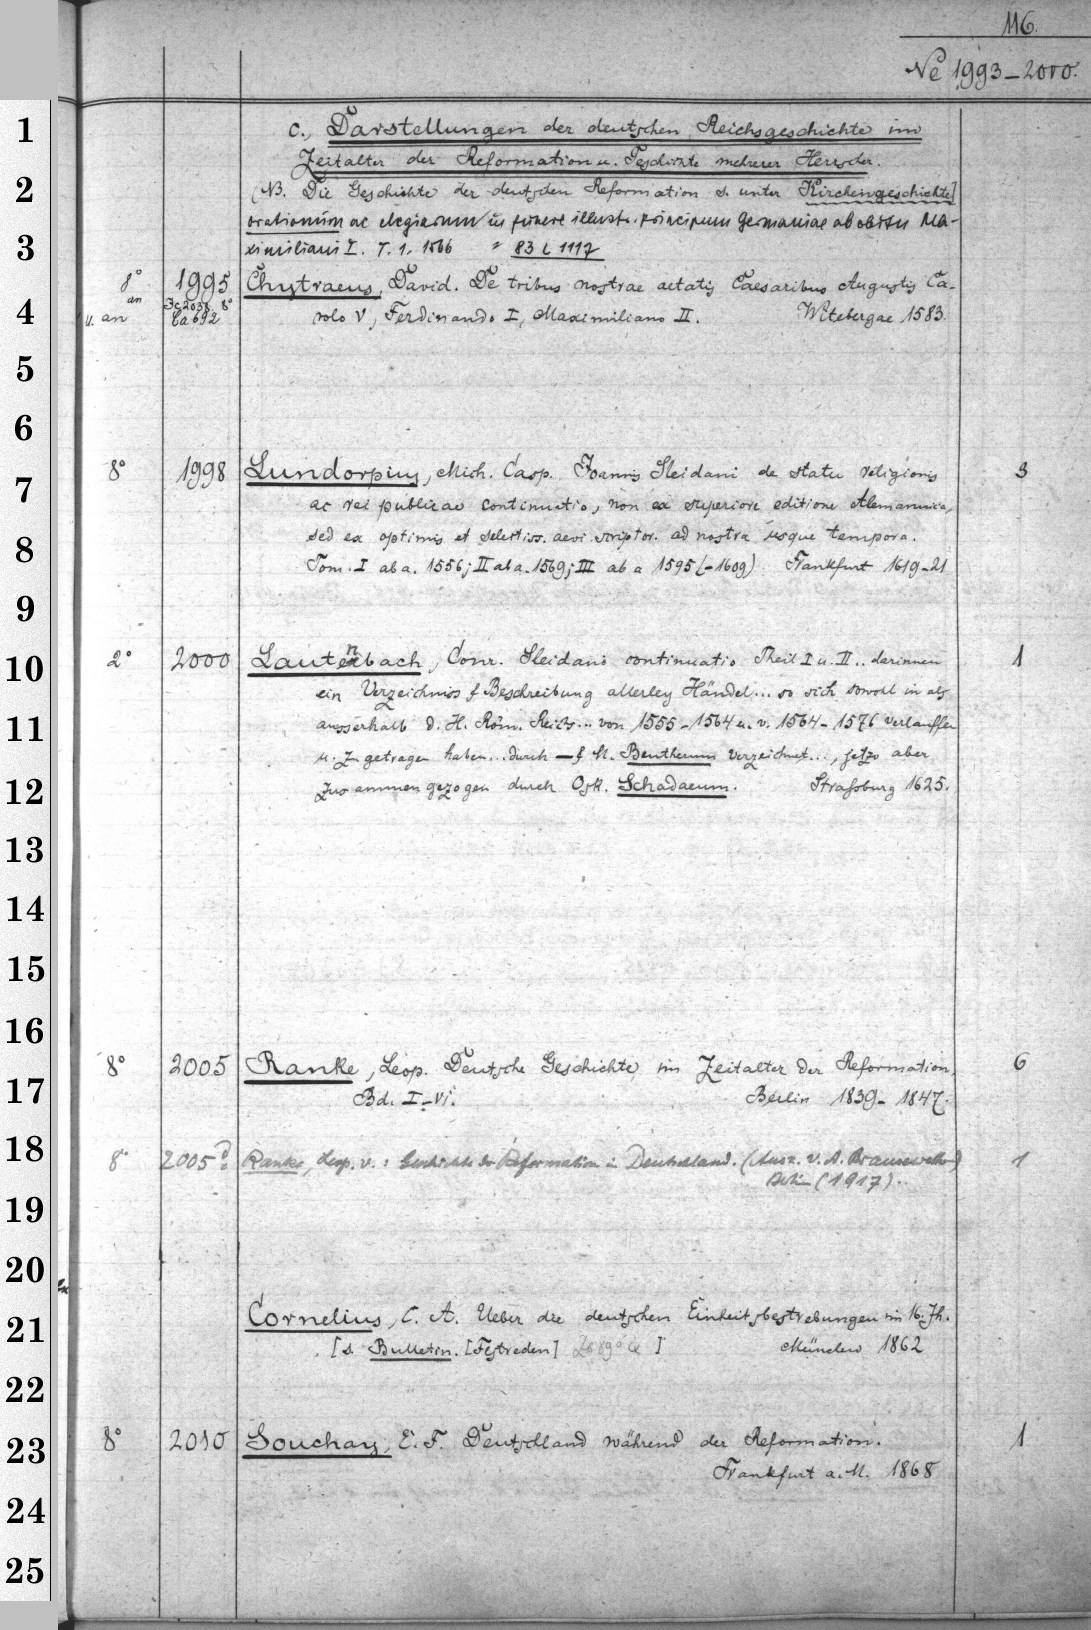 116.
No 1993–2000.
c., Darstellungen der deutschen Reichsgeschichte im
Zeitalter der Reformation u. Geschichte mehrerer Herrscher.
[NB. Die Geschichte der deutschen Reformation s. unter Kirchengeschichte]
orationum ac elegiarum in funere illustr. principum Germaniae ab obitu Ma-
ximiliani I. T. 1. 1566 = 83 L 1117
8° 1995 Chytraeus, David. De tribus nostrae aetatis Caesaribus Augustis Ca-
an Jc 2038 8°
u. an Ca 692 rolo V, Ferdinando I, Maximiliano II. Witebergae 1583.
8° 1998 Lundorpius, Mich. Casp. Joannis Sleidani de statu religionis 3
ac rei publicae continuatio, non ex superiore editione Alemannica,
sed ex optimis et selectiss. aevi scriptor. ad nostra usque tempora.
Tom. I ab a. 1556; II ab a. 1569; III ab a 1595 (–1609) Frankfurt 1619–21
2° 2000 Lautenbach, Conr. Sleidani continuatio Theil I u. II.. darinnen 1
ein Verzeichniss & Beschreibung allerley Händel... so sich sowohl in als
ausserhalb d. H. Röm. Reichs... von 1555–1564 u. v. 1564–1576 verlauffen
u. zugetragen haben... durch — & M. Beutherum verzeichnet..., jetzo aber
zusammengezogen durch Osk. Schadaeum. Straßburg 1625.
8° 2005 Ranke, Leop. Deutsche Geschichte im Zeitalter der Reformation, 6
Bd. I–VI. Berlin 1839–1847.
8° 2005 Ranke, Leop. v.: Geschichte der Reformation in Deutschland. (Ausz. v. A. Brausewetter) 1
Berlin (1917).
Cornelius, C. A. Ueber die deutschen Einheitsbestrebungen im 16. Jh.
[s. Bulletin. [Festreden] ] München 1862
8° 2010 Souchay, E. F. Deutschland während der Reformation. 1
Frankfurt a. M. 1868
1
2
3
4
5
6
7
8
9
10
11
12
13
14
15
16
17
18
19
20
21
22
23
24
25